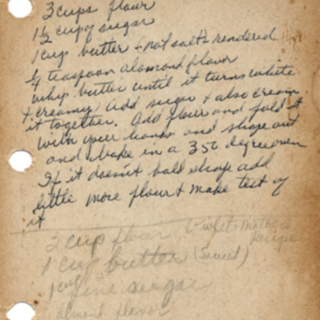 3 cups flour
1 1/2 cup sugar
1 cup butter - not salt - rendered
1/4 teaspoon alamond flavor
whip butter until it turns white
+ creamy, add sugar + also cream
it together. Add flour and fold it
with your hands and shape out
and bake in a 350 degree oven
If it doesn't hold shape add
little more flour + make test of
it
3 cup flour Violet Mothers
Recipe
1 cup butter (Sweet)
1 cup fine sugar
almond flavor